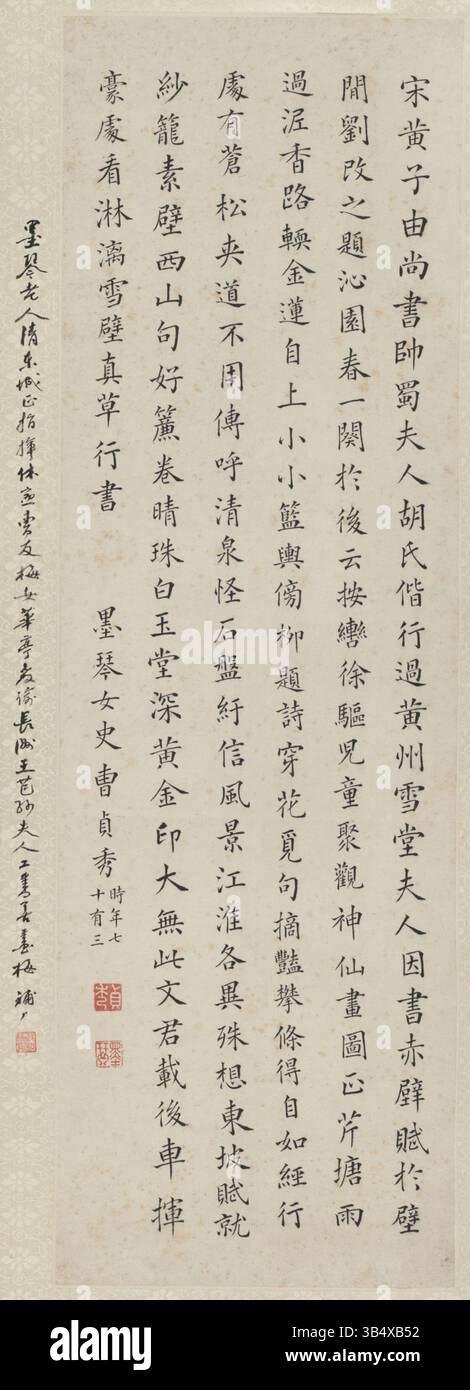 宋黃子由尚書帥蜀夫人胡氏偕行過黃州雪堂夫人因書赤壁賦於壁
閒劉改之題沁園春一闋於後云按轡徐驅兒童聚觀神仙畫圖正芹塘雨
過泥香路輭金蓮自上小小籃輿傍柳題詩穿花覓句摘豔攀條得自如經行
處有蒼松夾道不用傳呼清泉怪石盤紆信風景江淮各異殊想東坡賦就
紗籠素壁西山句好簾卷晴珠白玉堂深黃金印大無此文君載後車揮
豪處看淋漓雪壁真草行書
墨琴女史曹貞秀
時年七
十有三
墨琴老人清東城正指揮休寧曹友梅女華亭教諭長洲王芑孫夫人工書善畫梅
alamy
Image ID: 3B4XB52
www.alamy.com